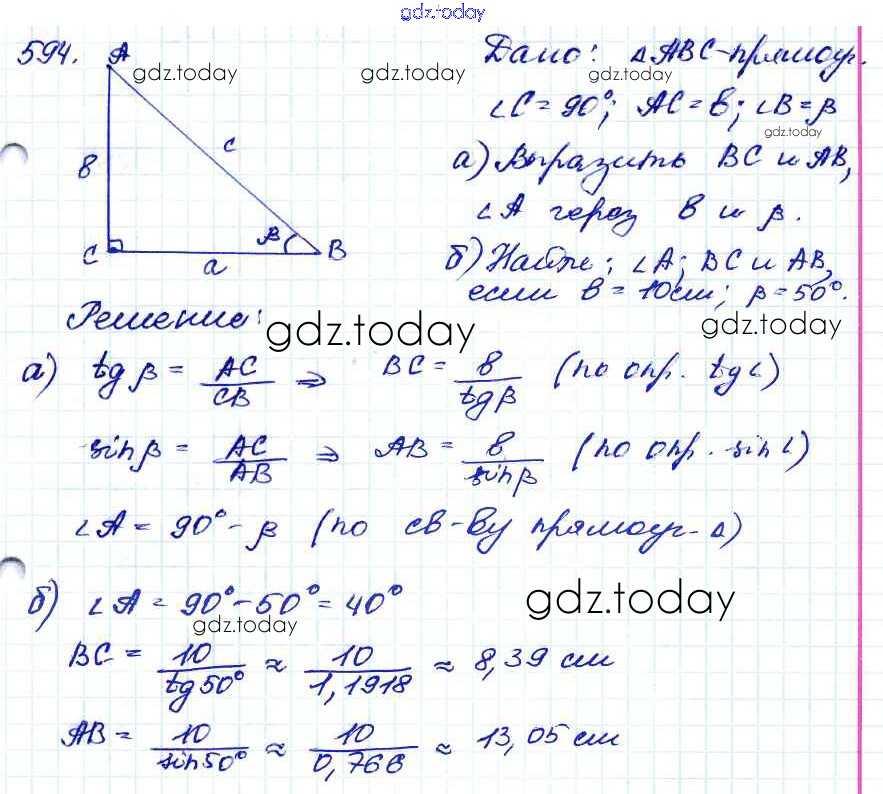 gdz.today
594.
A
gdz.today
в
c
C
a
β
B
gdz.today
Дано: ΔABC-прямоуг.
gdz.today
∠C = 90°; AC = в; ∠B = β
gdz.today
а) Выразить BC и AB,
∠A через в и β.
б) Найти: ∠A; BC и AB,
если в = 10см; β = 50°.
Решение:
gdz.today
gdz.today
а) tg β = AC/CB ⇒ BC = в/tgβ (по опр. tg∠)
sin β = AC/AB ⇒ AB = в/sinβ (по опр. sin∠)
∠A = 90° - β (по св-ву прямоуг-Δ)
б) ∠A = 90° - 50° = 40°
gdz.today
gdz.today
BC = 10/tg50° ≈ 10/1,1918 ≈ 8,39 см
AB = 10/sin50° ≈ 10/0,766 ≈ 13,05 см